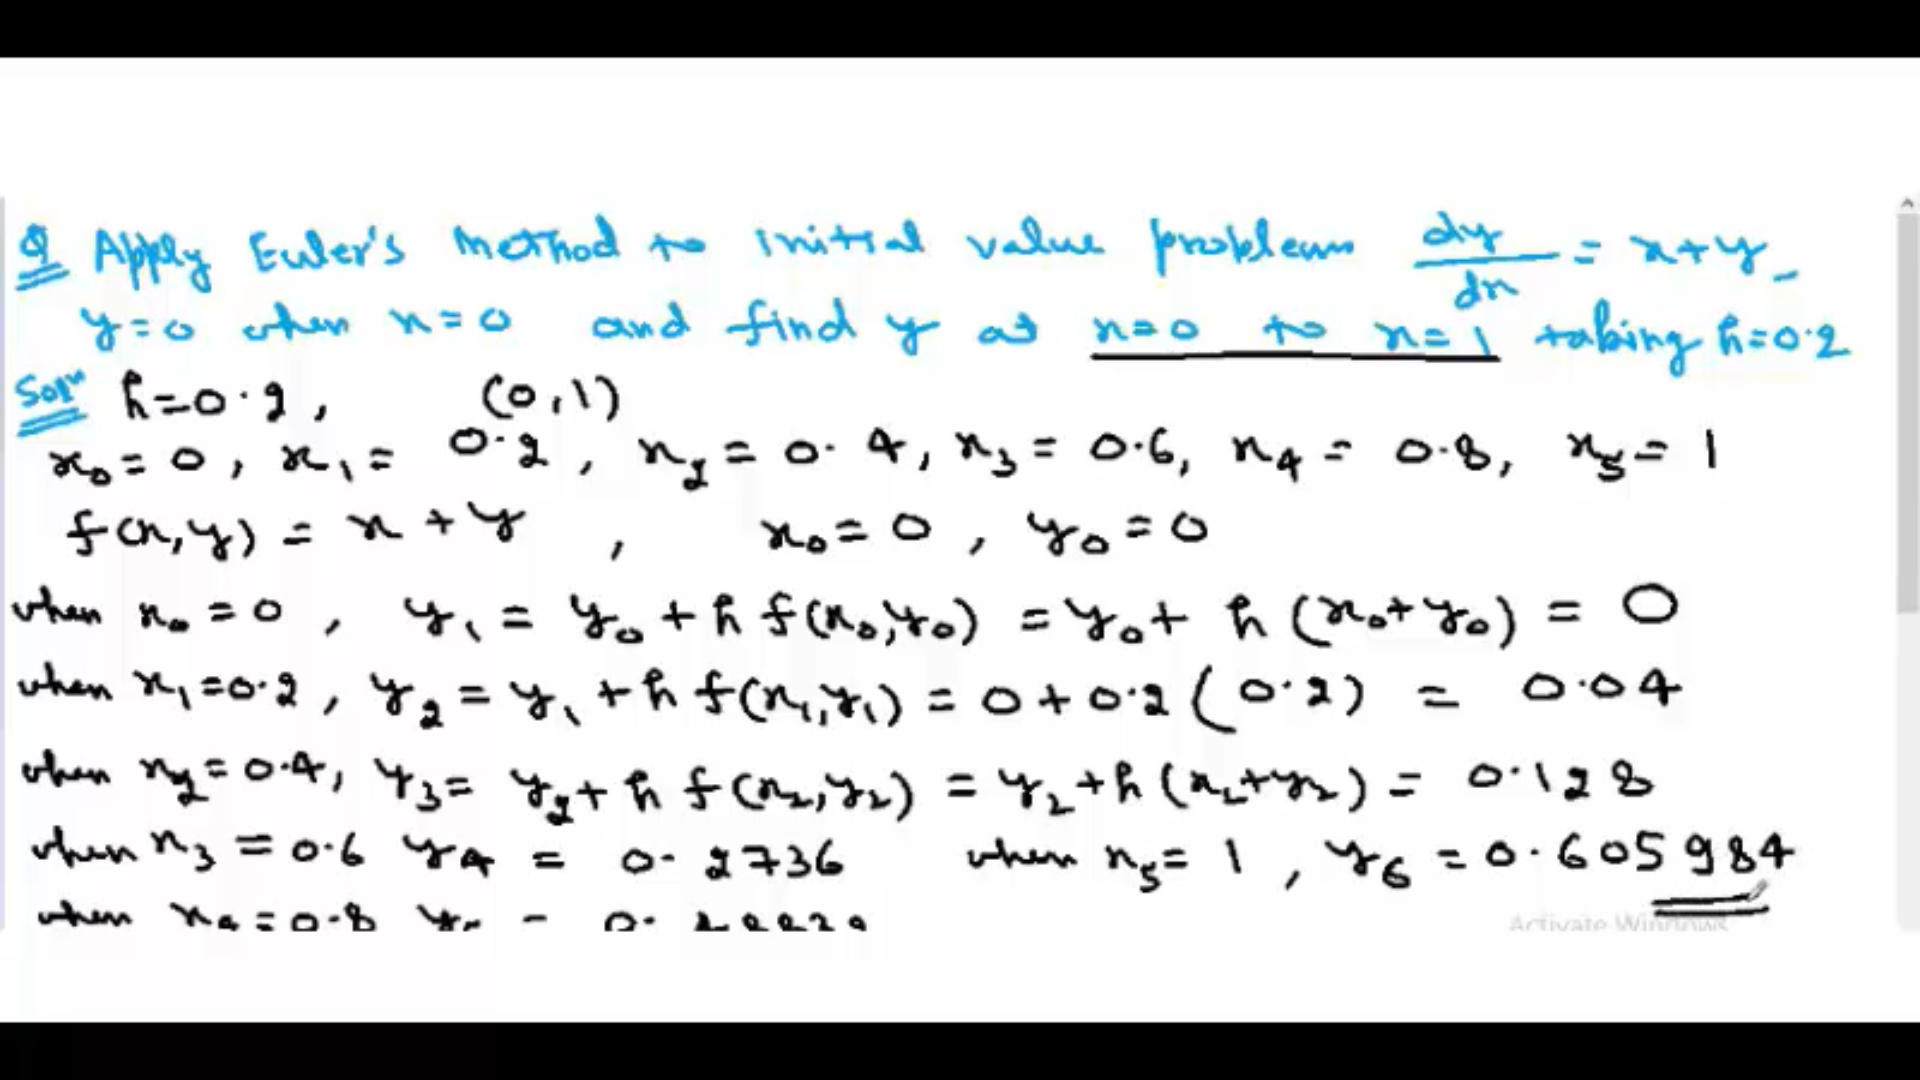 Q Apply Euler's Method to initial value problem dy/dx = x+y,
y=0 when x=0 and find y at x=0 to x=1 taking h=0.2
Solⁿ h=0.2, (0,1)
x₀=0, x₁= 0.2, x₂= 0.4, x₃= 0.6, x₄= 0.8, x₅= 1
f(x,y) = x+y, x₀=0, y₀=0
when x₀=0, y₁ = y₀+h f(x₀,y₀) = y₀+ h (x₀+y₀) = 0
when x₁=0.2, y₂ = y₁+h f(x₁,y₁) = 0+0.2(0.2) = 0.04
when x₂=0.4, y₃= y₂+h f(x₂,y₂) = y₂+h(x₂+y₂) = 0.128
when x₃ = 0.6 y₄ = 0.2736 when x₅= 1, y₆ = 0.605984
when x₄=0.8
Activate Windows